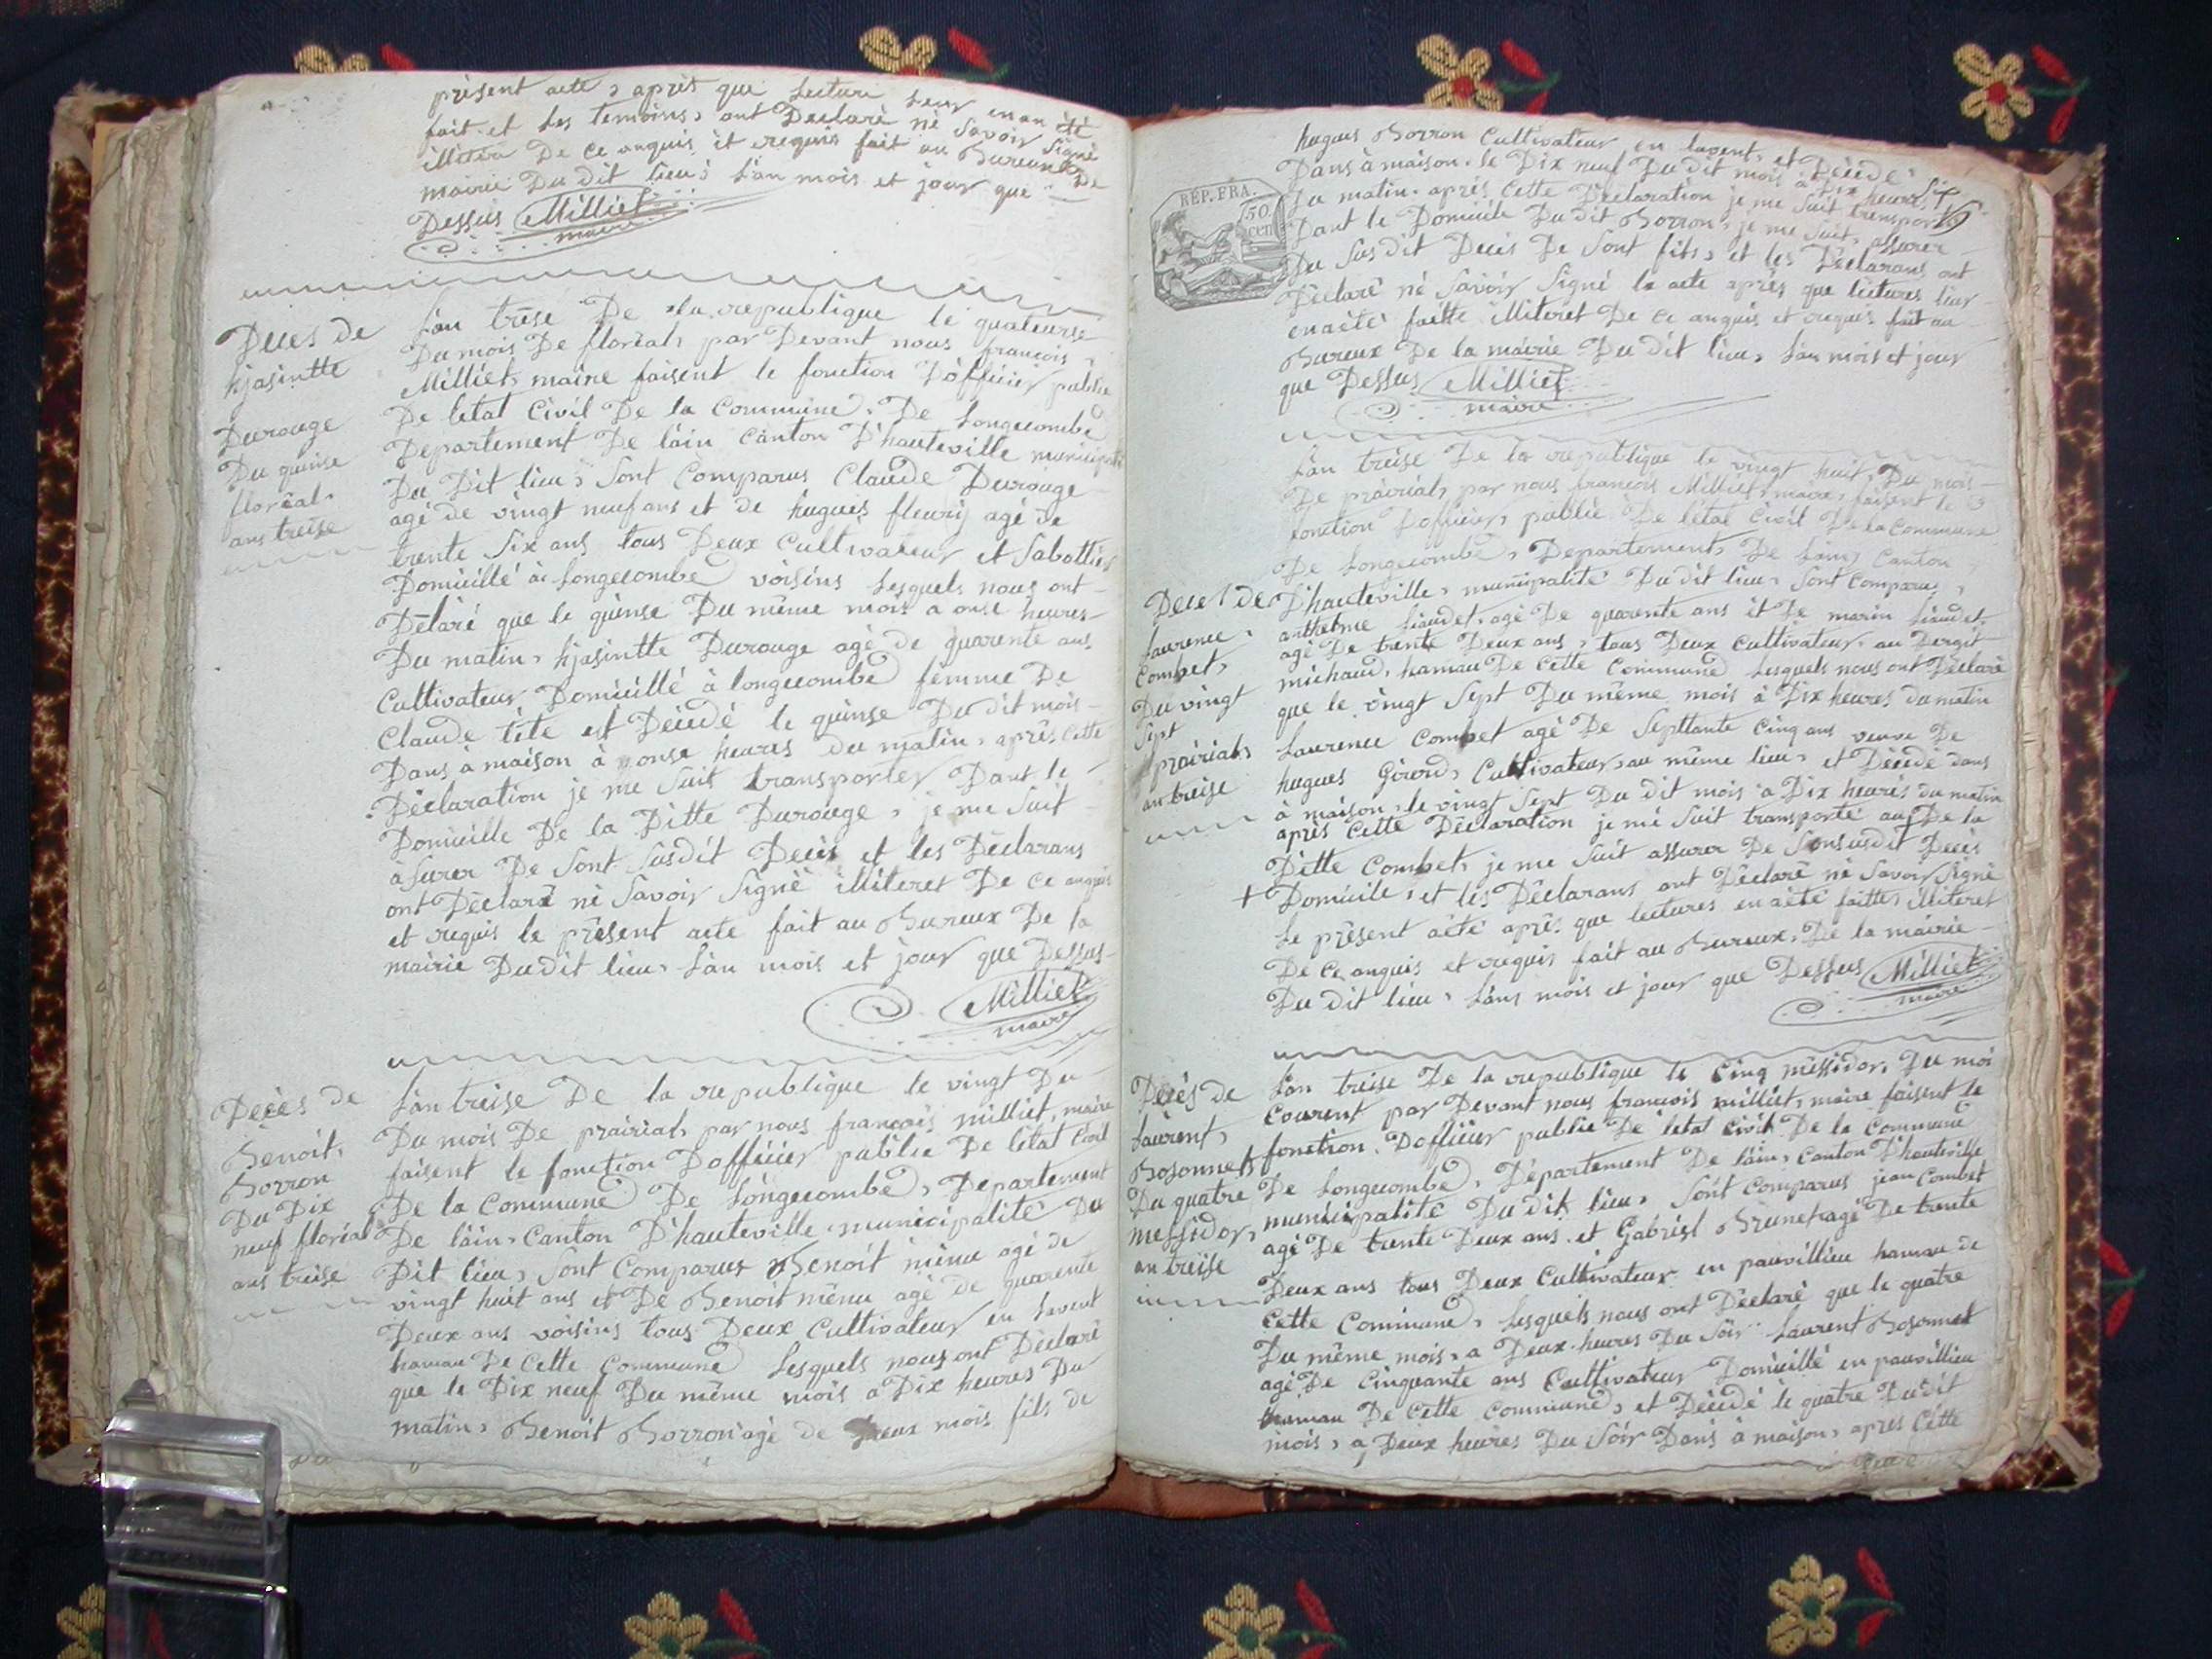 présent acte, aprèt que Lecture Leur en an été
fait et Les temoins, ont Declaré nè Savoir Signè
illitéra De ce anquis et requis fait au Bureau De
mairie Du dit lieu, L'an mois et jour que
Dessus Milliet
maire
Deces de
hjasintte
Durouge
Du quinse
florèal
ans treise
L'an trèse De la republique le quatorse
Du mois De florèal, par Devant nous francois,
Milliet, maire faisent le fonction D'officier public
De letat Civil De la Commune, De Longecombe
Departement De l'ain Canton D'hauteville municipali
Du Dit lieu, Sont Comparus Claude Durouge
agé de vingt neuf ans et de hugues fleury agé de
trente Six ans tous Deux Cultivateur et Sabottier
Domicillé à Longecombe voisins Lesquels nous ont
Dèlarè que le quinse Du même mois a onse heures
Du matin, hjasintte Durouge agé de quarente ans
Cultivateur Domicillé à longecombe femme De
Claude tète et Dècedé le quinse Du dit mois
Dans à maison à onse heures du matin, après Cette
Dèclaration je me Suit transporter Dant le
Domicille De la Ditte Durouge, je me Suit
àsurer De Sont Susdit Decès et les Dèclarans
ont Dèclarè nè Savoir Signè illiteret De ce anquis
et requis le prèsent acte fait au Bureux De la
mairie Du dit lieu, L'an mois et jour que Dessus
Milliet
maire
Decès de
Benoit,
Borron
Du Dix
neuf florèal
ans treise
L'an treise De la republique le vingt Du
Du mois De prairial, par nous françois milliet, maire
faisent le fonction D'officier public De létat Civil
De la Commune De Longecombe, Departement
De l'ain, Canton D'hauteville municipalité Du
Dit lieu, Sont Comparus Benoit même agé de
vingt huit ans et De Benoit même agé de quarente
Deux ans voisins tous Deux Cultivateur en Lavent
hamau De Cette Commune Lesquels nous ont Dèclarè
que le Dix neuf Du même mois à Dix heures Du
matin, Benoit Borron agé de Deux mois fils de
hugues Borron Cultivateur en lavent, et Dècede
Dans à maison, le Dix neuf Du dit mois à Dix heures
Du matin, aprés Cette Dèclaration je me Suit transporté
RÉP. FRA.
50
cen
Dant le Domicile Du dit Borron, je me Suit, assurer
Du Sus dit Decès De Sont fils, et les Dèclarans ont
Dèclarè nè Savoir Signé le acte aprés que lectures leur
en aété faitte illiteret De ce anquis et requis fait au
Bureux De la mairie Du dit lieu, L'an mois et jour
que Dessus Milliet
maire
Deces de
Laurence,
Combet,
Du vingt
Sept
prairial,
an treise
L'an treise De la republique le vingt huit, Du mois
De prairial, par nous francois Milliet, maire, faisent le
fonction D'officier, public De l'état Civil De la Commune
De Longecombe, Departement, De L'ain, Canton
D'hauteville, municipalité Du dit lieu, Sont Comparu,
anthelme Liaudet, agé De quarente ans et De marin Liaudet,
agé De trente Deux ans, tous Deux Cultivateur, au Dergit
michaud, hamau De Cette Commune Lesquels nous ont Dèclarè
que le vingt Sept Du même mois à Dix heures du matin
Laurence Combet agé De Septtante Cinq ans veuve De
hugues Girord, Cultivateur, au même lieu, et Dècedé dans
à maison, le vingt Sept Du dit mois a Dix heures du matin
aprés Cette Dèclaration je mè Suit transporté au De la
Dètte Combet, je me Suit assurer De Sonsusdit Decès
+ Domicile, et les Dèclarans ont Dèclarè nè Savoir Signè
Le prèsent acte aprés que lectures en aété faittes illiteret
De ce anquis et requis fait au Bureux, De la mairie
Du dit lieu, L'ans mois et jour que Dessus Milliet
maire
Decès de
Laurent,
Bosonnet
Du quatre
messidor,
an treise
L'an treise De la republique le Cinq mèssidor, Du moi
Courent par Devant nous francois milliet, maire faisent le
fonction D'officier public De létat Civil De la Commune
De Longecombe, Dèpartement De l'ain, Canton D'hauteville
municipalité Du dit lieu, Sont Comparus jean Combet
agé De trente Deux ans et Gabriel Brunet agé De trente
Deux ans tous Deux Cultivateur en pauvillieu hamau de
Cette Commune, Lesquels nous ont Dèclarè que le quatre
Du même mois, a Deux heures Du Soir Laurent Bosonnet
agé De Cinquante ans Cultivateur Domicillé en pauvillieu
hamau De Cette Commune, et Dècedé le quatre Du dit
mois, a Deux heures Du Soir Dans à maison, apres Cette